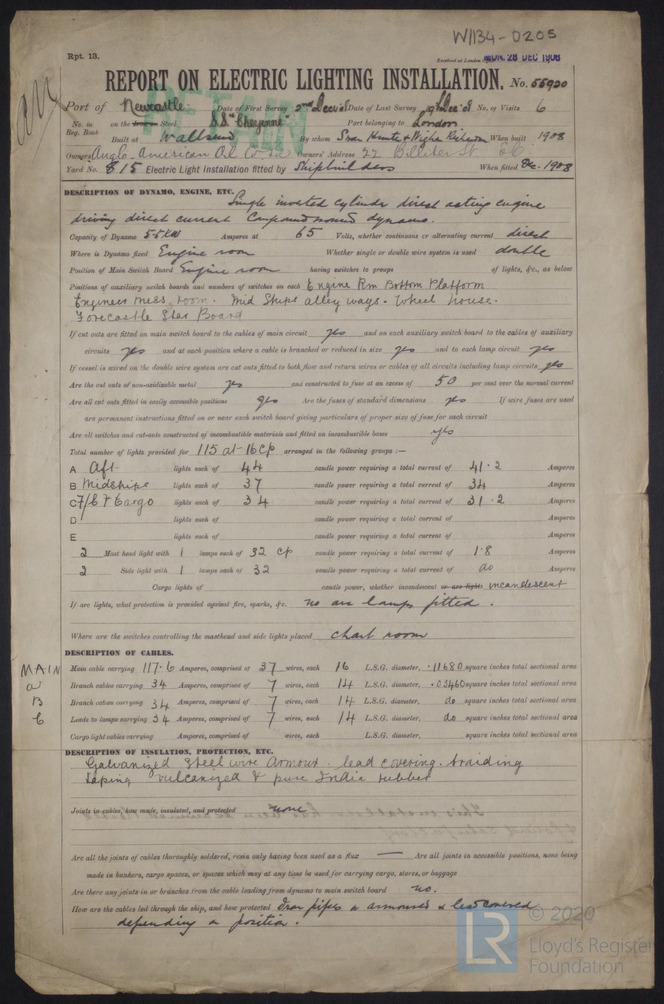 W1134-0205
Rpt. 13.
Received at London MON. 28 DEC 1908
REPORT ON ELECTRIC LIGHTING INSTALLATION. No. 55920
Port of Newcastle Date of First Survey Dec Date of Last Survey Dec No. of Visits 6
No. in Reg. Book on the Iron or Steel S.S. "Cheyenne" Port belonging to London
Built at Wallsend By whom Swan Hunter & Wigham Richardson When built 1908
Owners Anglo-American Oil Co Ld Owners' Address 22 Billiter St EC
Yard No. 815 Electric Light Installation fitted by Shipbuilders When fitted Dec. 1908
DESCRIPTION OF DYNAMO, ENGINE, ETC.
Single inverted cylinder direct acting engine
driving direct current Compound wound dynamo.
Capacity of Dynamo Amperes at 65 Volts, whether continuous or alternating current direct
Where is Dynamo fixed Engine room Whether single or double wire system is used double
Position of Main Switch Board Engine room having switches to groups of lights, &c., as below
Positions of auxiliary switch boards and numbers of switches on each Engine Rm Bottom Platform
Engineers mess room. Mid Ships alley ways. Wheel house.
Forecastle Star Board
If cut outs are fitted on main switch board to the cables of main circuit yes and on each auxiliary switch board to the cables of auxiliary
circuits yes and at each position where a cable is branched or reduced in size yes and to each lamp circuit yes
If vessel is wired on the double wire system are cut outs fitted to both flow and return wires or cables of all circuits including lamp circuits yes
Are the cut outs of non-oxidizable metal yes and constructed to fuse at an excess of 50 per cent over the normal current
Are all cut outs fitted in easily accessible positions yes Are the fuses of standard dimensions yes If wire fuses are used
are permanent instructions fitted on or near each switch board giving particulars of proper size of fuse for each circuit
Are all switches and cut-outs constructed of incombustible materials and fitted on incombustible bases yes
Total number of lights provided for 115 at 16 cp arranged in the following groups :—
A Aft lights each of 44 candle power requiring a total current of 41.2 Amperes
B Midships lights each of 37 candle power requiring a total current of 34 Amperes
C F/C & Cargo lights each of 34 candle power requiring a total current of 31.2 Amperes
D lights each of candle power requiring a total current of Amperes
E lights each of candle power requiring a total current of Amperes
2 Mast head light with 1 lamps each of 32 cp candle power requiring a total current of 1.8 Amperes
2 Side light with 1 lamps each of 32 candle power requiring a total current of do Amperes
Cargo lights of candle power, whether incandescent or arc lights incandescent
If arc lights, what protection is provided against fire, sparks, &c. no arc lamps fitted.
Where are the switches controlling the masthead and side lights placed chart room
DESCRIPTION OF CABLES.
MAIN Main cable carrying 117.6 Amperes, comprised of 37 wires, each 16 L.S.G. diameter, .11680 square inches total sectional area
a Branch cables carrying 34 Amperes, comprised of 7 wires, each 14 L.S.G. diameter, .03460 square inches total sectional area
B Branch cables carrying 34 Amperes, comprised of 7 wires, each 14 L.S.G. diameter, do square inches total sectional area
C Leads to lamps carrying 34 Amperes, comprised of 7 wires, each 14 L.S.G. diameter, do square inches total sectional area
Cargo light cables carrying Amperes, comprised of wires, each L.S.G. diameter, square inches total sectional area
DESCRIPTION OF INSULATION, PROTECTION, ETC.
Galvanized steel wire Armour. lead covering. braiding
taping vulcanized & pure India rubber
Joints in cables, how made, insulated, and protected none
Are all the joints of cables thoroughly soldered, resin only having been used as a flux — Are all joints in accessible positions, none being
made in bunkers, cargo spaces, or spaces which may at any time be used for carrying cargo, stores, or baggage
Are there any joints in or branches from the cable leading from dynamo to main switch board no.
How are the cables led through the ship, and how protected Iron pipes or armoured & lead covered
depending on position.
© 2020
LR Lloyd's Register
Foundation